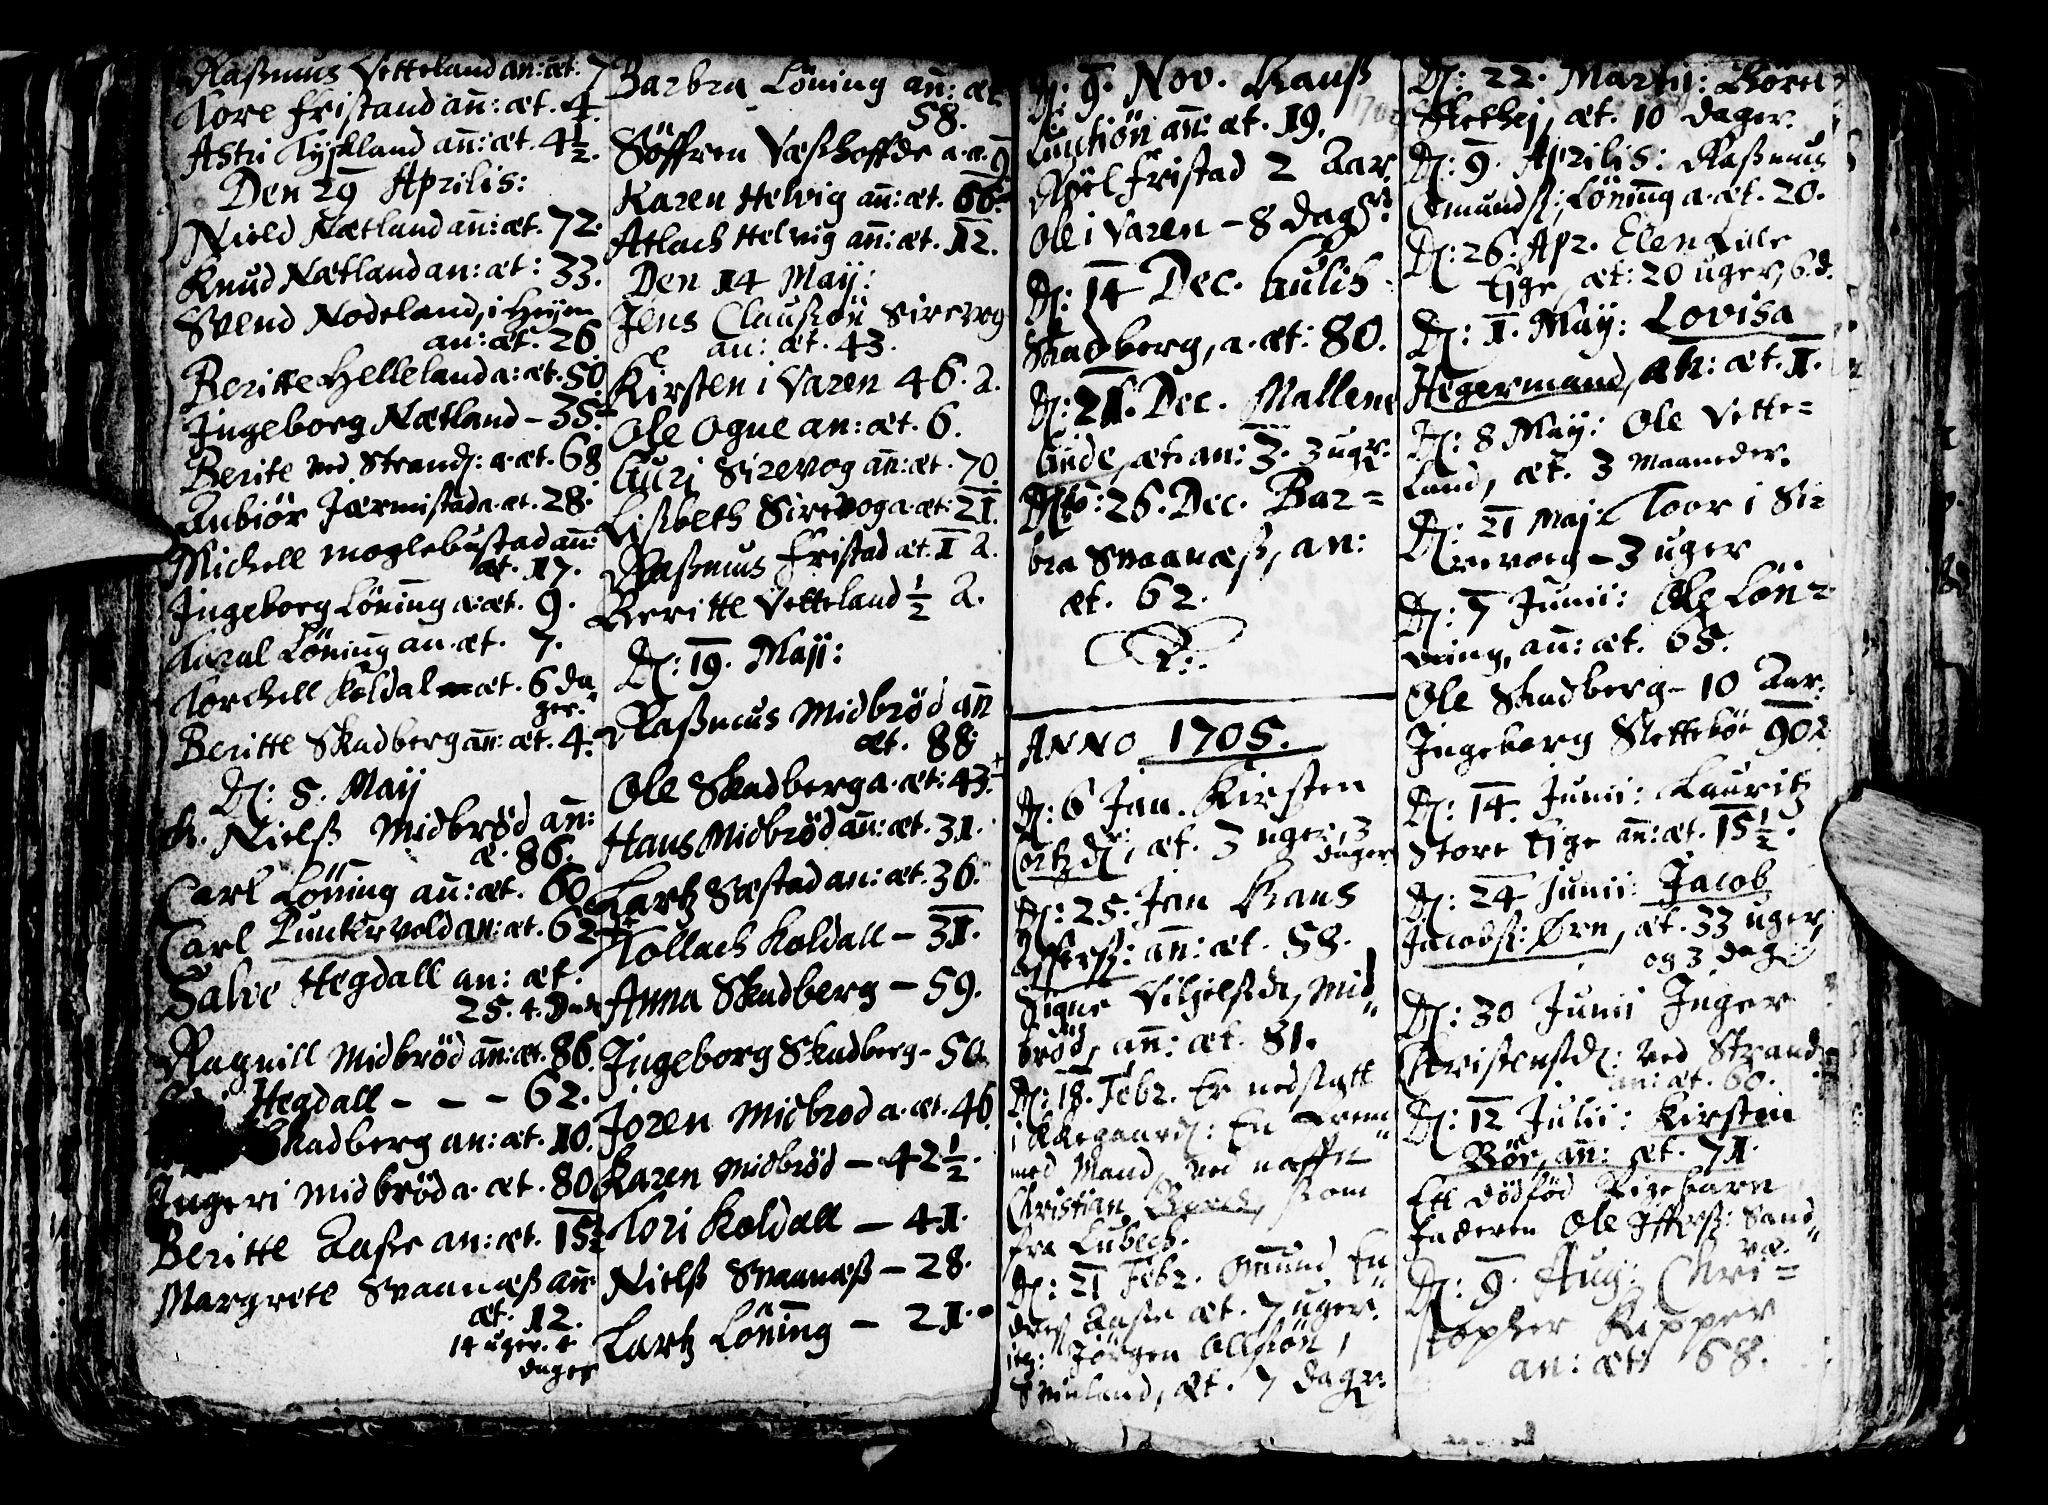 Rasmus Vetteland an: æt. 7
Tore Fristand an̄: æt. 4.
Astri Tyskland an̄: æt. 4½.
Den 29 Aprilis:
Nield Nætland an̄: æt. 72.
Knud Nætland an: æt: 33.
Svend Nodeland, i Heyen
an: æt. 26
Beritte Helleland a: æt. 50
Ingeborg Nætland – 35.
Berite ved Strand: a. æt. 68
Anbiør Jærmistad a. æt. 28.
Michell Moglebustad an̄:
æt. 17.
Ingeborg Löning a: æt. 9.
Löning an. æt. 7.
Torchell Koldal æt. 6 da
ger.
Beritte Skadberg an̄: æt. 4.
D: 5. May
Nielß Midbrød an̄:
æ. 86.
Carl Löning an̄: æt. 60
Carl an: æt. 62
Salve Hegdall an: æt:
25. 4.
Ragnill Midbrød an̄: æt. 86.
Hegdall – – – 62.
Skadberg an: æt. 10.
Ingeri Midbrød a. æt. 80
Beritte Aase an: æt. 15½
Margrete Svaanæß an̄
æt. 12.
14 uger. 4
dager
Barbra Löning an̄: æt
58.
Söffren a. æ. 9
Karen Helvig an̄: æt. 66.
Atlach Helvig an̄: æt. 12.
Den 14 May:
Jens Claussøn Sirevog
an: æt. 43.
Kirsten i Varen 46. a.
Ole Ogne an: æt. 6.
Guri Sirevog an̄: æt. 70.
Lißbeth Sirevog a. æt: 21.
Rasmus Fristad æt. 1 a.
Beritte Vetteland ½ a.
D: 19. Maji:
Rasmus Midbrød an̄
æt. 88
Ole Skadberg a. æt: 43.
Hans Midbrød an̄: æt. 31.
Lartz Sæstad an: æt. 36.
Tollach Koldall – 31.
Anna Skadberg – 59.
Ingeborg Skadberg – 50
Joren Midbrod a. æt. 46
Karen Midbrød – 42½.
Tori Koldall – 41.
Nielß Svaanæß – 28.
Lartz Löning – 21.
D: 9. Nov.
an̄: æt. 19.
Fristad 2 Aar.
Ole i Varen – 8 dager
D: 14 Dec. Gulib
Skadberg, a. æt: 80.
D: 21. Dec. Mallene
Gude, æt. an: 3. 3 uger.
26. Dec. Bar=
bra Svaanæß, an:
æt. 62.
ANNO 1705.
D: 6 Jan. Kirsten
æt. 3 uger, 3
dager
D: 25. Jan Hans
an̄: æt. 58.
Signe Mid
brød, an̄: æt. 81.
D: 18. Febr. Er nedsatt
i En Frem
med Mand, ved naffn
Christian som
fra Lübech.
D: 21 Febr. Ommund En
dres Aase æt. 7 uger.
it: Jörgen Ollsøn,
æt. 7 dager.
D: 22. Martii: Børn
æt. 10 dager.
D: 9. Aprilis: Rasmus
Omunds: Löning a. æt. 20.
D: 26. Apr. Elen Lille
Ege æt: 20 uger, 6. d.
D: 1. May: Lovisa
Hegermand, an: æt. 1.
D: 8 May: Ole Vette=
land, æt. 3 Maaneder.
D: 21 Maj: Toor i Si=
revoeg – 3 uger
D: 7 Junii: Ole Lön=
ning, an̄: æt. 65.
Ole Skadberg – 10 Aar.
Ingeborg Slettebø 90 a
D: 14. Junii: Lauritz
Store Ege an̄: æt. 15½.
D: 24 Junii: Jacob
Jacobs: Ørn, æt. 33 uger,
og 3 dag:
D: 30 Junii Inger
Christensd: ved Strand
an: æt. 60.
D: 12 Julii: Kirsten
Böe, an̄: æt. 71.
Ett dödfød Pigebarn
Faderen Ole Sand
væ.
D: 9. Aug: Chri=
stopher Kipper
an: æt: 58.